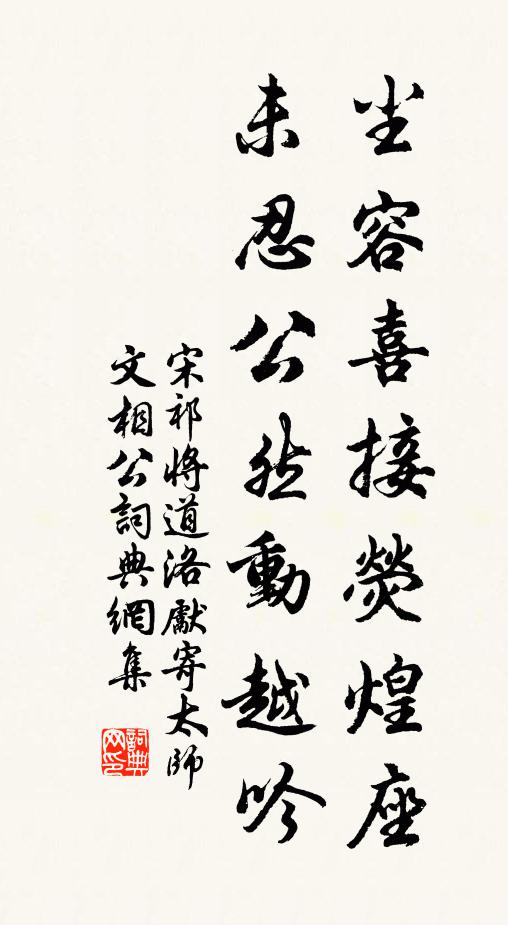 尘容喜接熒煌座
未忍公然動越吟
宋祁將道洛獻寄太師
文相公詞典網集
詞典
网印